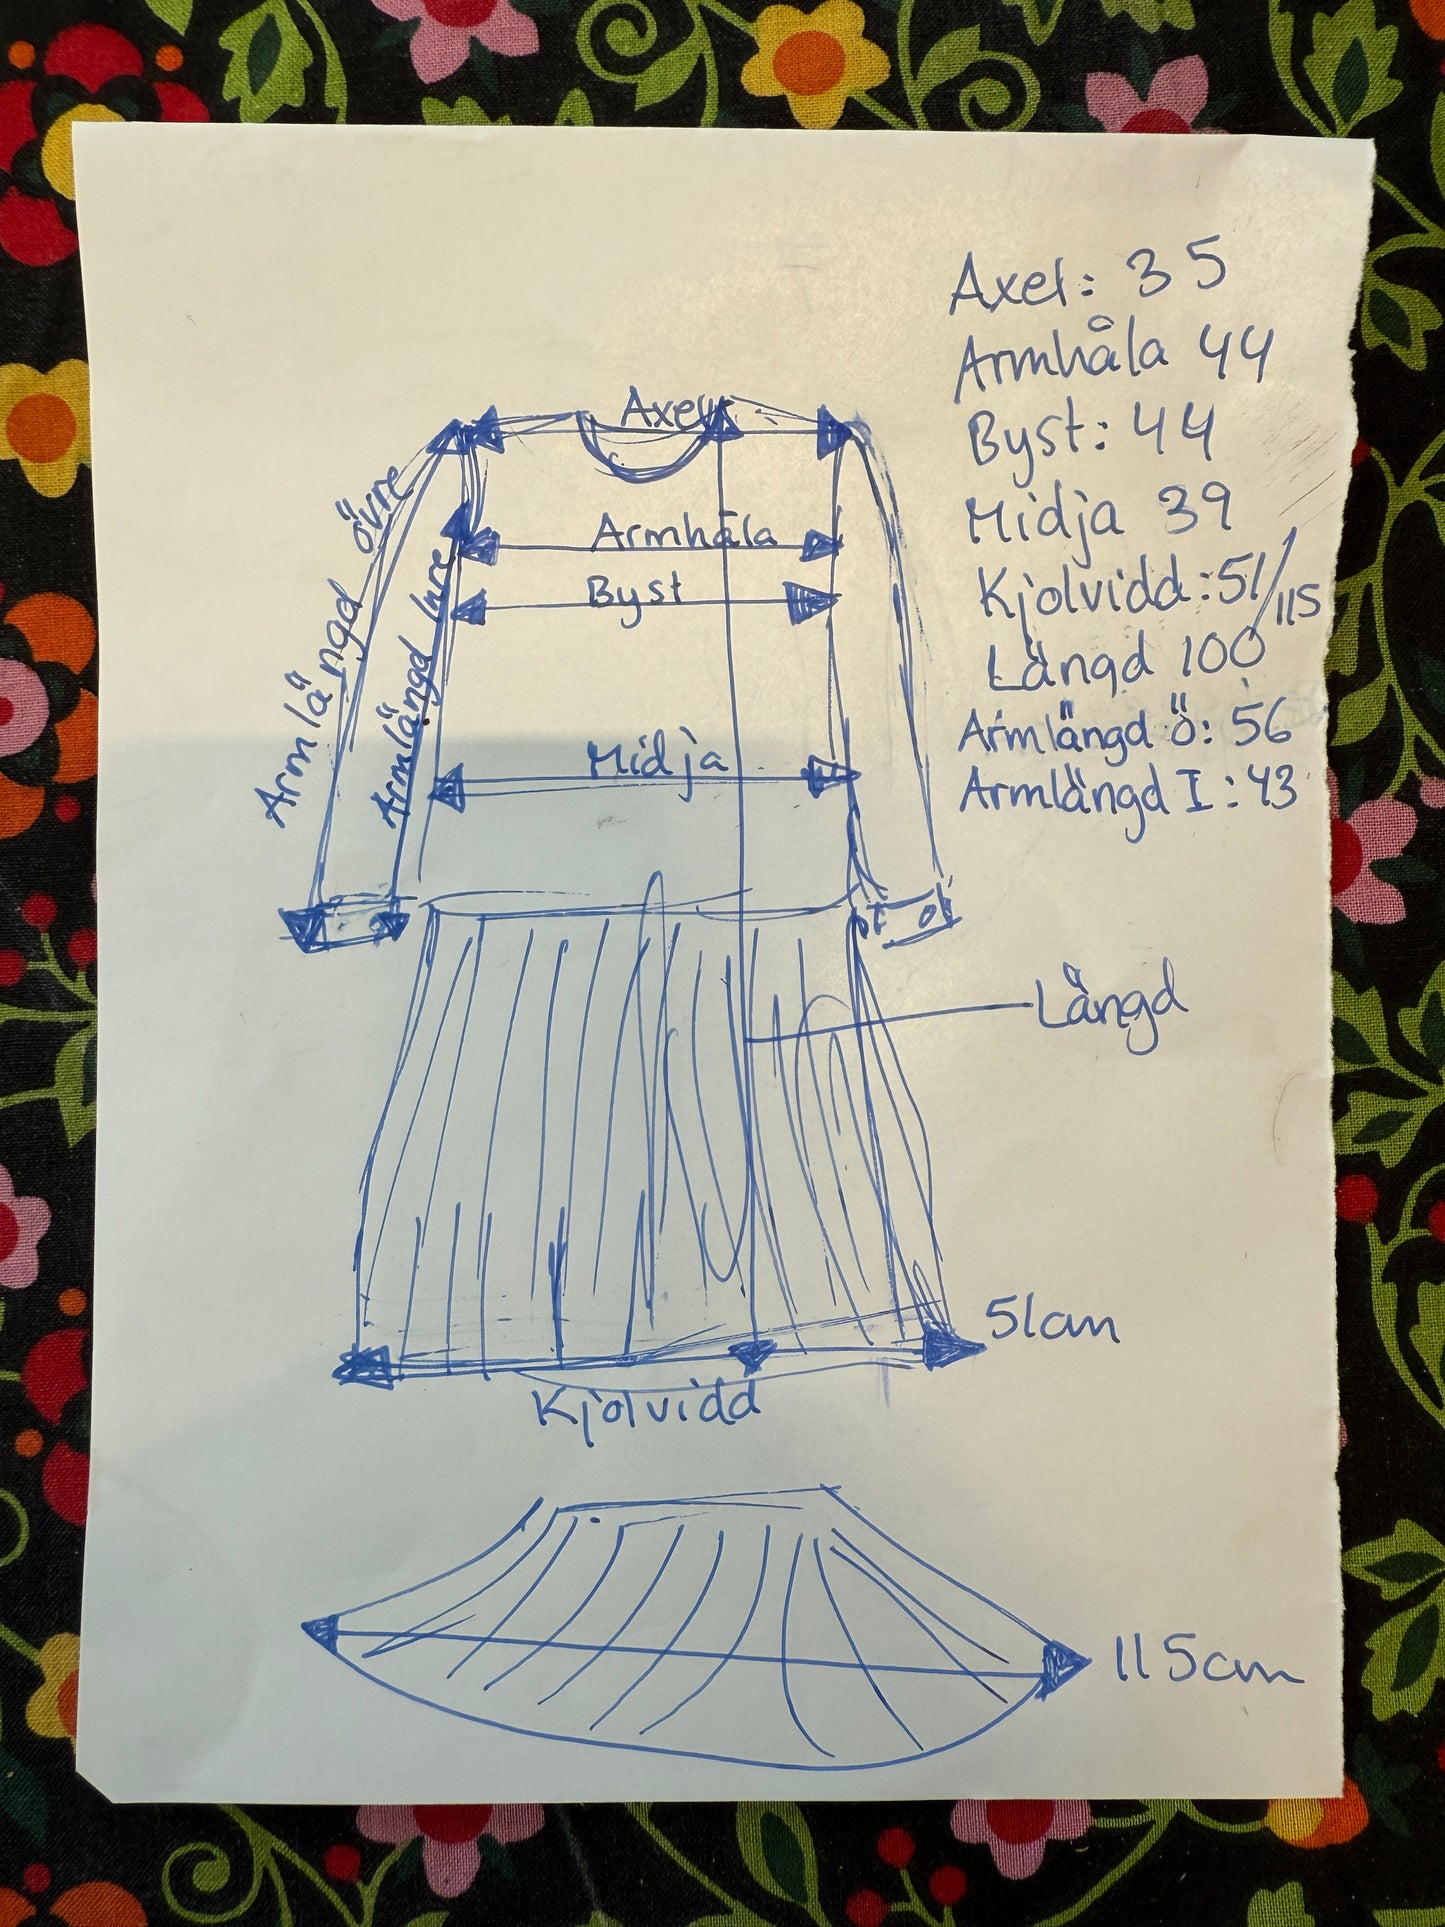 Axel: 35
Armhåla 44
Byst: 44
Midja 39
Kjolvidd: 51/115
Längd 100
Armlängd Ö: 56
Armlängd I: 43
Axel
Armlängd övre
Armlängd Inre
Armhåla
Byst
Midja
Längd
51cm
Kjolvidd
115cm